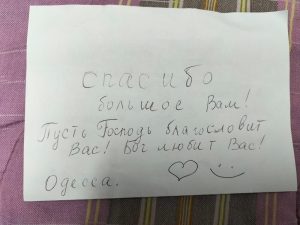 спасибо
большое Вам!
Пусть Господь благословит
Вас! Бог любит Вас!
Одесса.